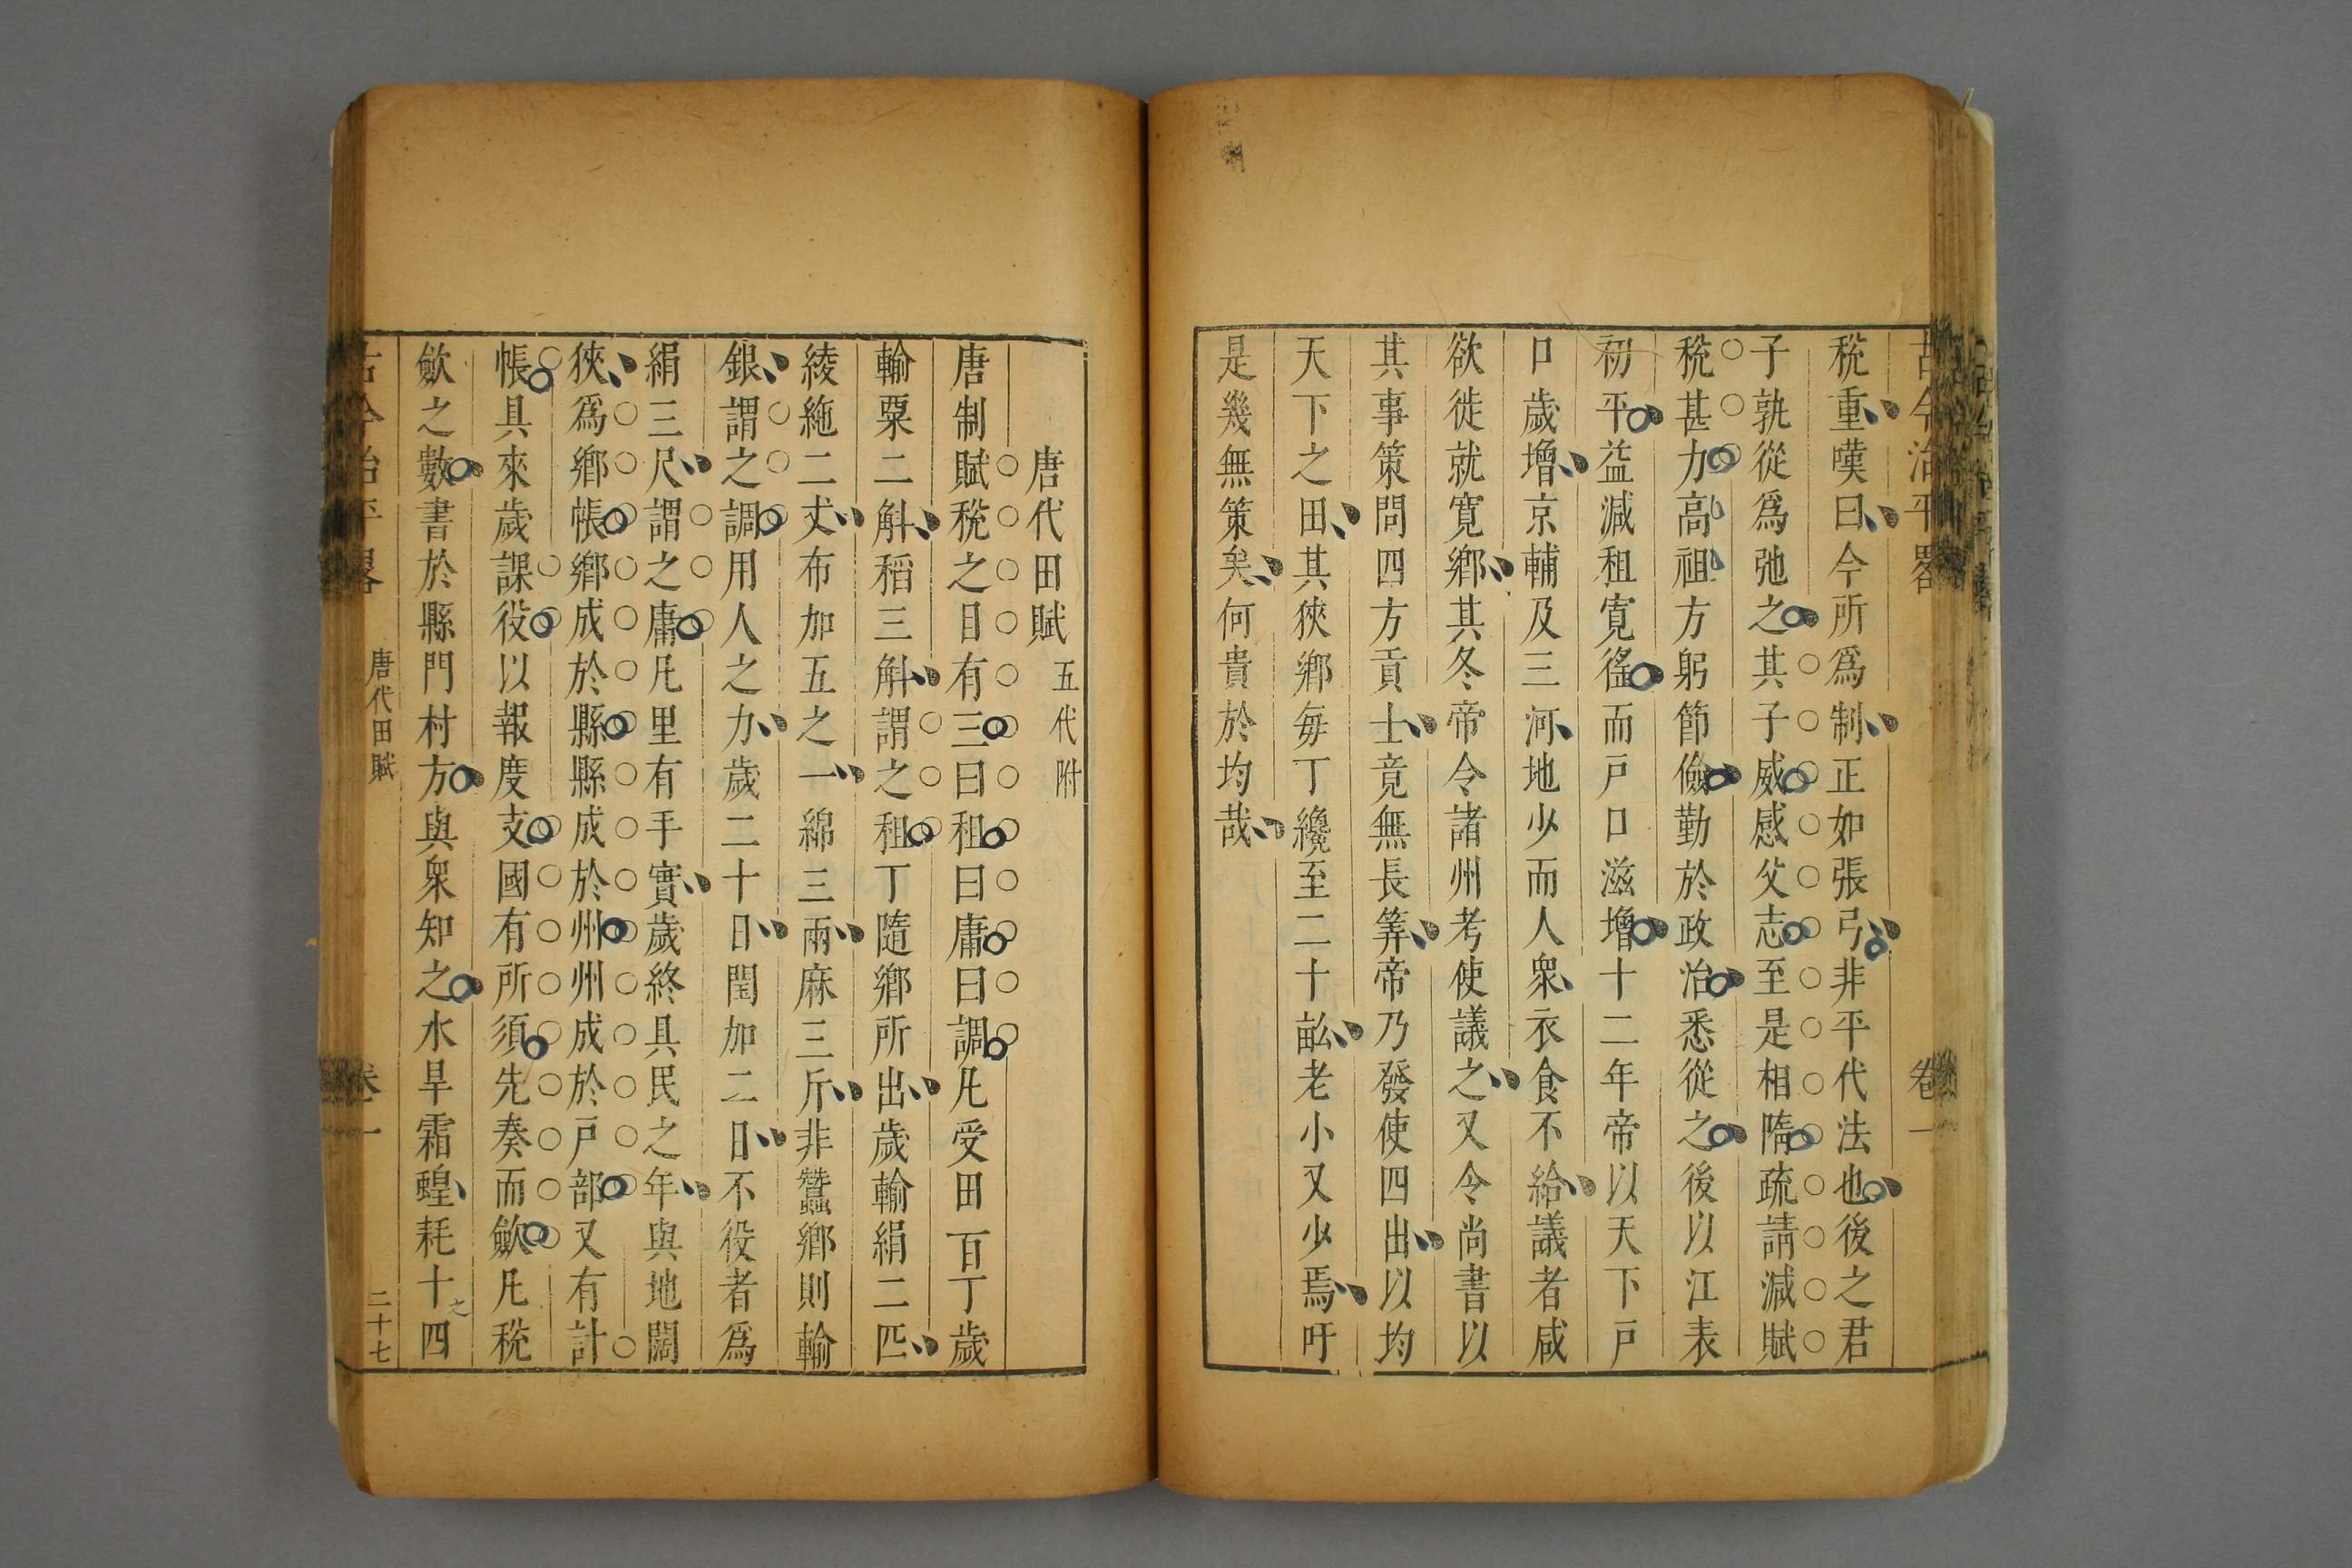 古今治平畧 卷一
稅重嘆曰今所爲制正如張弓非平代法也後之君
子孰從爲弛之其子威感父志至是相隋疏請減賦
稅甚力高祖方躬節儉勤於政治悉從之後以江表
初平益減租寬徭而戸口滋增十二年帝以天下戸
口歲增京輔及三河地少而人衆衣食不給議者咸
欲徙就寬鄉其冬帝令諸州考使議之又令尚書以
其事策問四方貢士竟無長筭帝乃發使四出以均
天下之田其狹鄉每丁纔至二十畝老小又少焉吁
是幾無策矣何貴於均哉
唐代田賦 五代附
唐制賦稅之目有三曰租曰庸曰調凡受田百丁歲
輸粟二斛稻三斛謂之租丁隨鄉所出歲輸絹二匹
綾絁二丈布加五之一綿三兩麻三斤非蠶鄉則輸
銀謂之調用人之力歲二十日閏加二日不役者爲
絹三尺謂之庸凡里有手實歲終具民之年與地闊
狹爲鄉帳鄉成於縣縣成於州州成於戸部又有計
帳具來歲課役以報度支國有所須先奏而歛凡稅
歛之數書於縣門村方與衆知之水旱霜蝗耗十之四
古今治平畧 唐代田賦 卷一 二十七